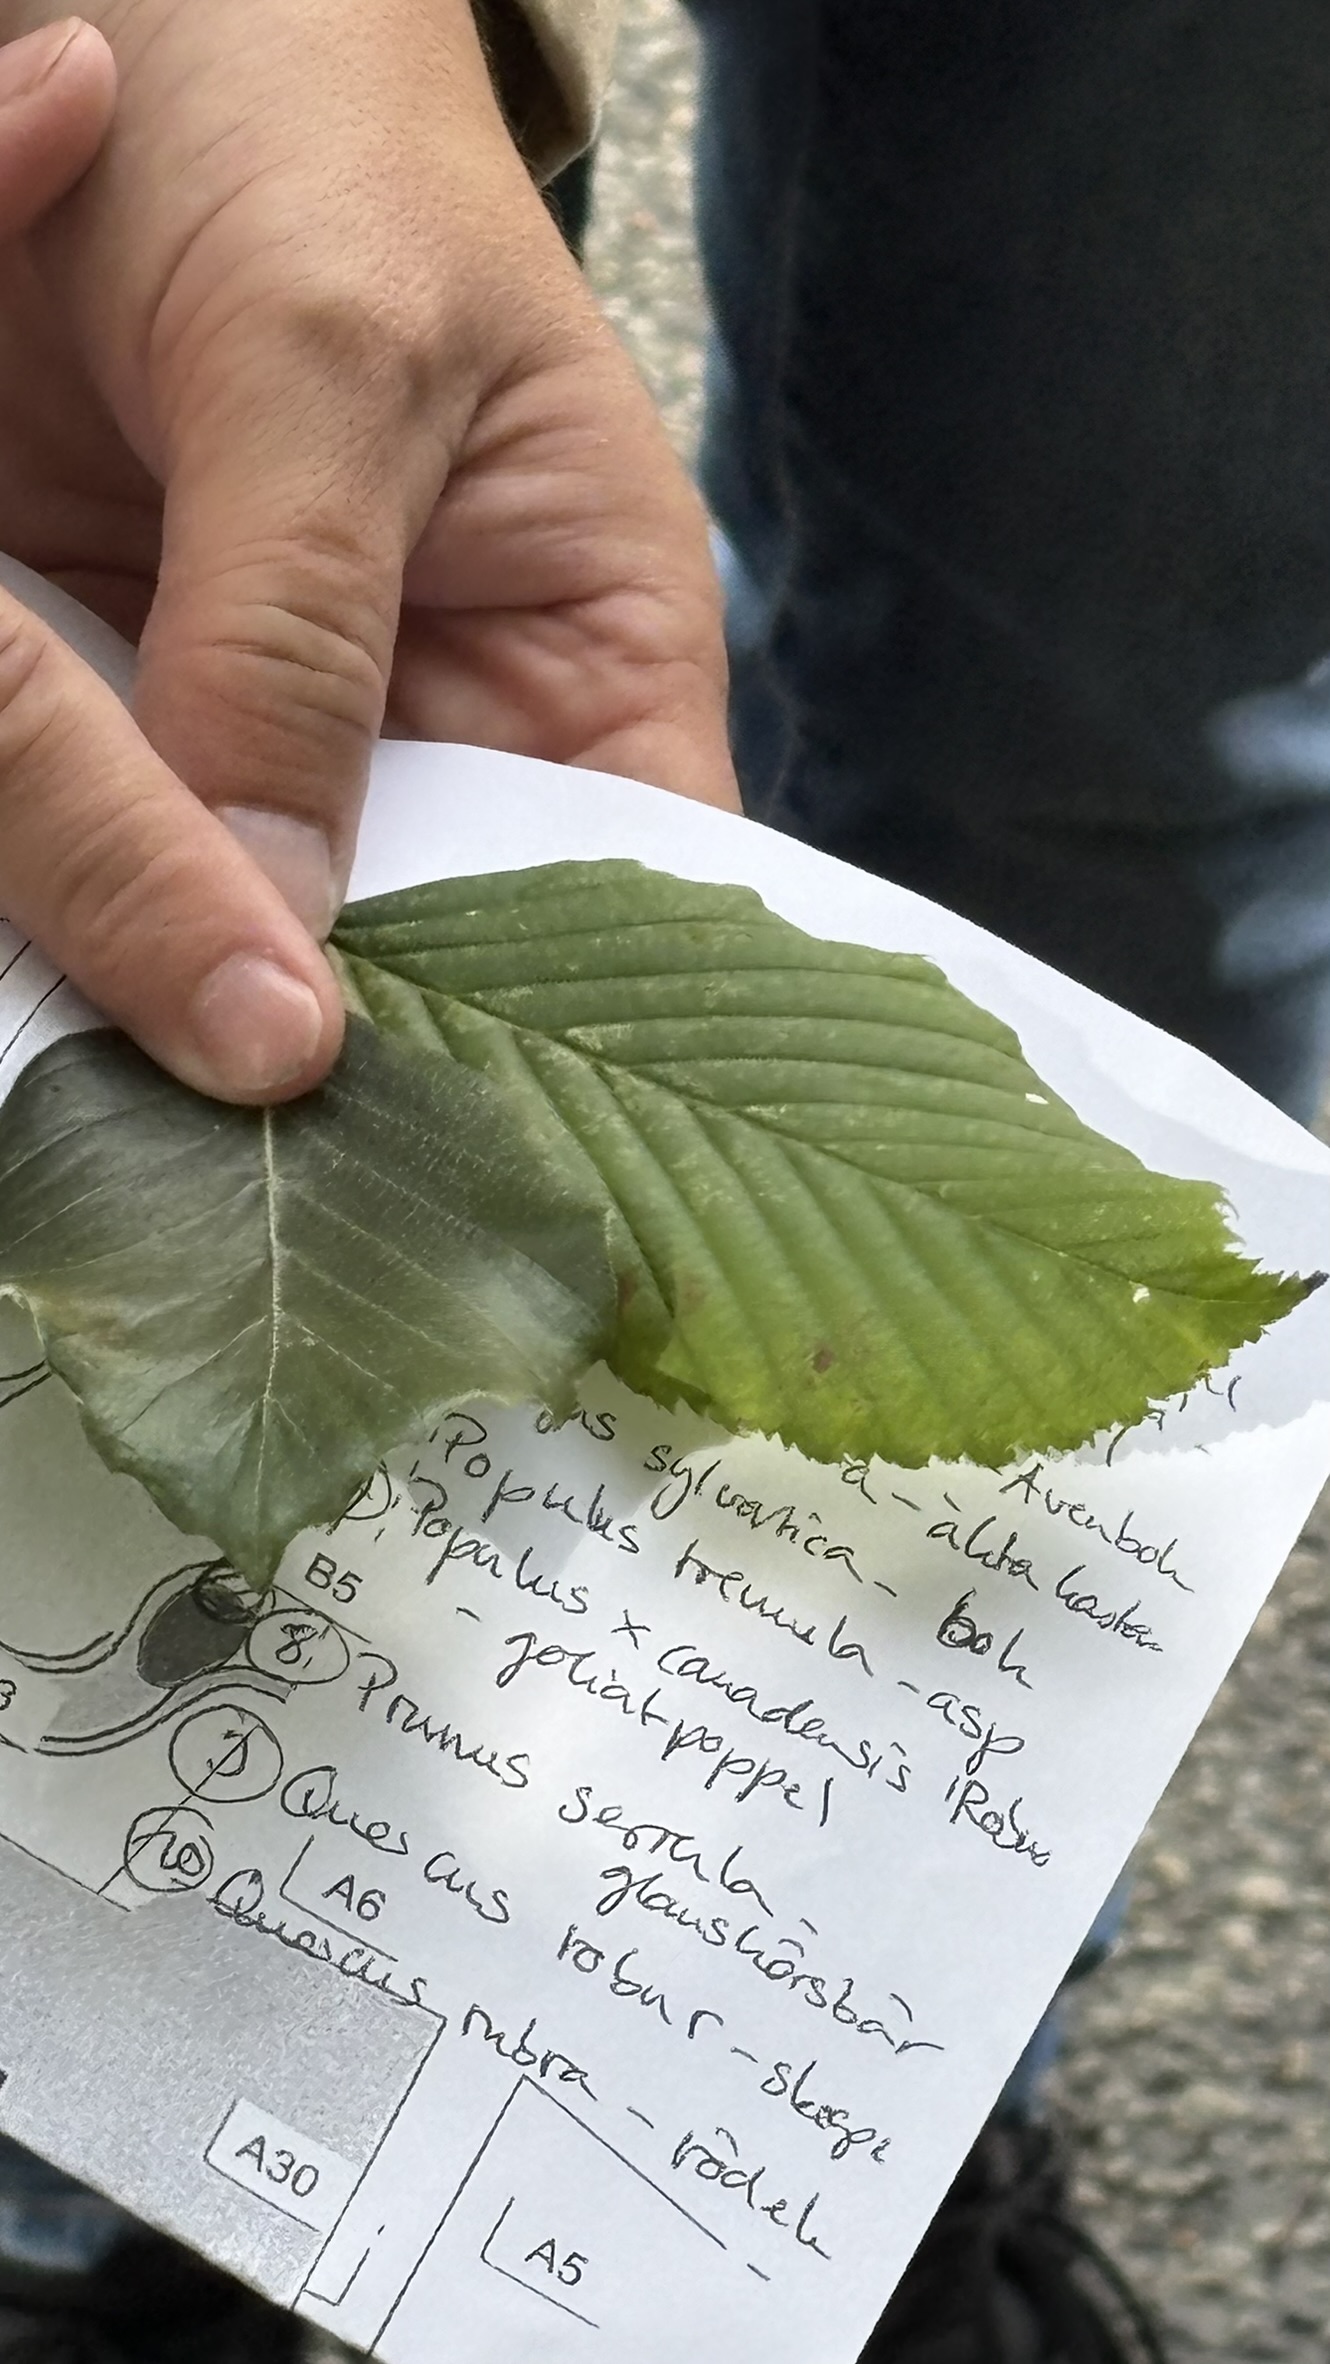 Avenbok
äkta kastan
sylvatica - bok
Populus tremula - asp
Populus x canadensis 'Robus
- goliatpoppel
B5
8. Prunus serrula -
glanskörsbär
Quercus robur - skogs
A6
10 Quercus rubra - rödek
A30
A5